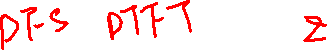 DFS DTFT Z